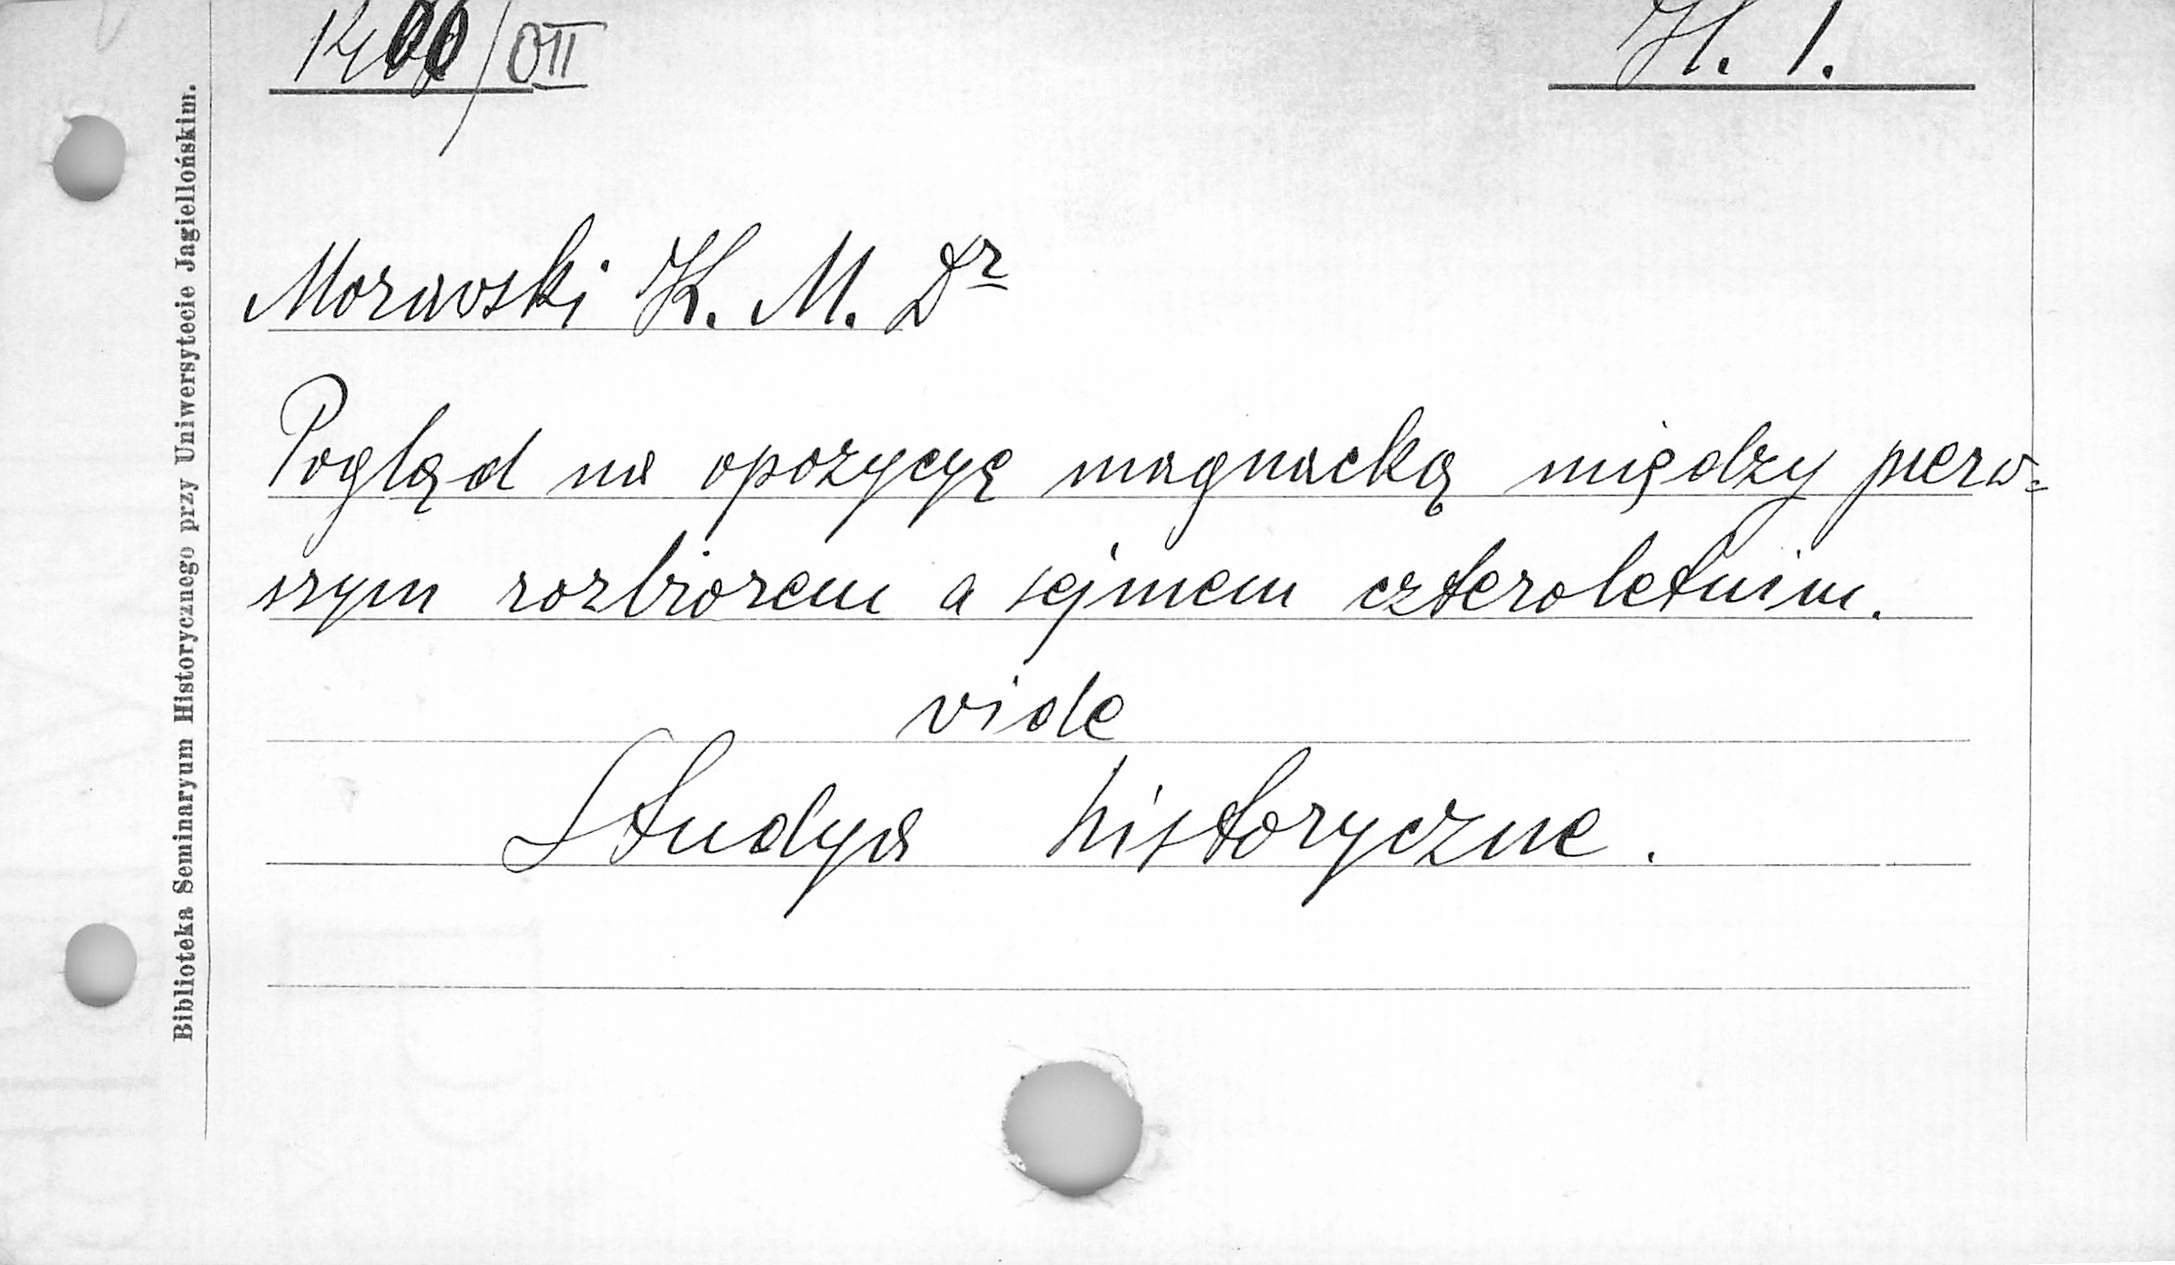 /OII
H. 1.
Morawski K. M. Dr
Pogląd na opozycyę magnacką między pierw=
szym rozbiorem a sejmem czteroletnim.
vide
Studya historyczne.
Biblioteka Seminaryum Historycznego przy Uniwersytecie Jagiellońskim.